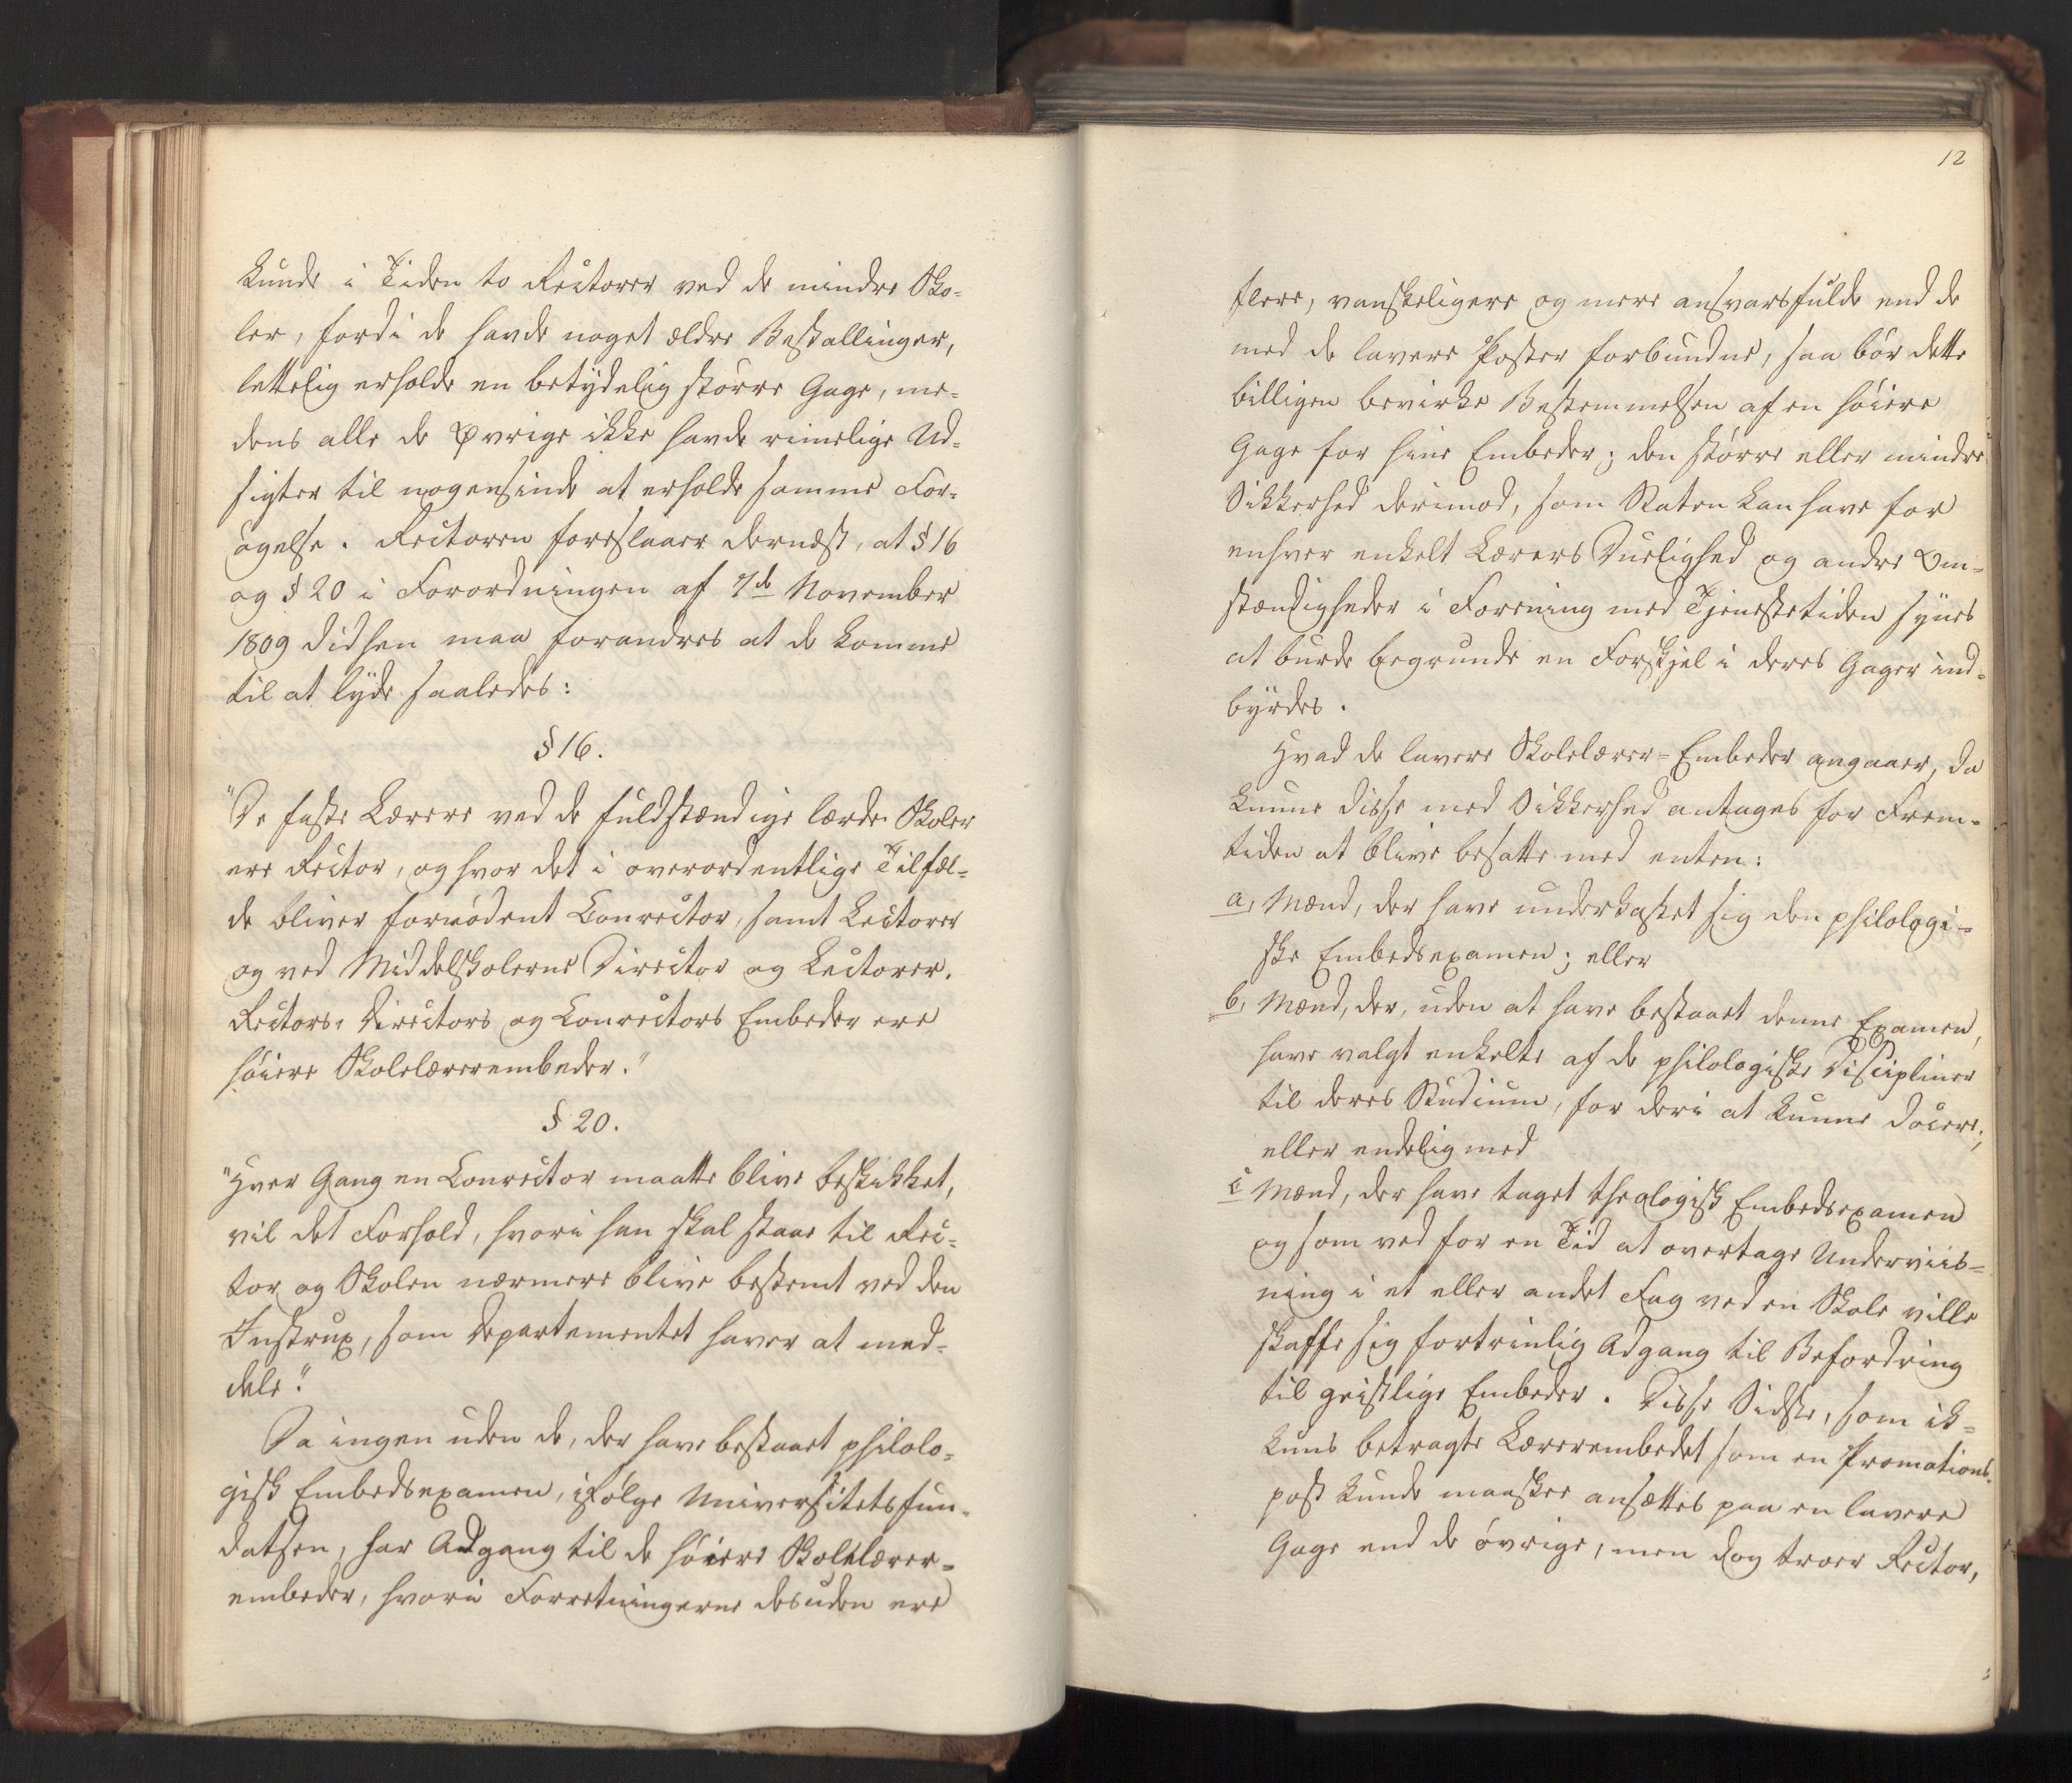 kunde i Tiden to Rectorer ved de mindre Sko-
ler, fordi de havde noget ældre Bestallinger,
lettelig erholde en betydelig större Gage, me-
dens alle de Øvrige ikke havde rimelige Ud-
sigter til nogensinde at erholde samme For-
ögelse. Rectoren foreslaaer dernæst, at § 16
og § 20 i Forordningen af 7de November
1809 didhen maa forandres at de komme
til at lyde saaledes:
§ 16.
"De faste Lærere ved de fuldstændige lærde Skoler
ere Rector, og hvor det i overordentlige Tilfæl-
de bliver fornödent Conrector, samt Lectorer
og ved Middelskolerne Director og Lectorer.
Rectors, Directors og Conrectors Embeder ere
höiere Skolelærerembeder."
§ 20.
"Hver Gang en Conrector maatte blive beskikket,
vil det Forhold, hvori han skal staae til Rec-
tor og Skolen nærmere blive bestemt ved den
Instrux, som Departementet haver at med-
dele."
Da ingen uden de, der have bestaaet philolo-
gisk Embedsexamen, ifölge Universitetsfun-
datsen, har Adgang til de höiere Skolelærer-
embeder, hvori Forretningerne desuden ere
12
flere, vanskeligere og mere ansvarsfulde end de
med de lavere Poster forbundne, saa bör dette
billigen bevirke Bestemmelsen af en höiere
Gage for hine Embeder; den större eller mindre
Sikkerhed derimod, som Staten kan have for
enhver enkelt Lærers Duelighed og andre Om-
stændigheder i Forening med Tjenestetiden synes
at burde begrunde en Forskjel i deres Gager ind-
byrdes.
Hvad de lavere Skolelærer-Embeder angaaer, da
kunne disse med Sikkerhed antages for Frem-
tiden at blive besatte med enten:
a, Mænd, der have underkastet sig den philologi-
ske Embedsexamen; eller
b, Mænd, der, uden at have bestaaet denne Examen,
have valgt enkelte af de philologiske Discipliner
til deres Studium, for deri at kunne docere;
eller endelig med
c Mænd, der have taget theologisk Embedsexamen
og som ved for en Tid at overtage Underviis-
ning i et eller andet Fag ved en Skole ville
skaffe sig fortrinlig Adgang til Befordring
til geistlige Embeder. Disse Sidste, som ik-
kuns betragte Lærerembedet som en Promotions-
post kunde maaskee ansættes paa en lavere
Gage end de övrige, men dog troer Rector,